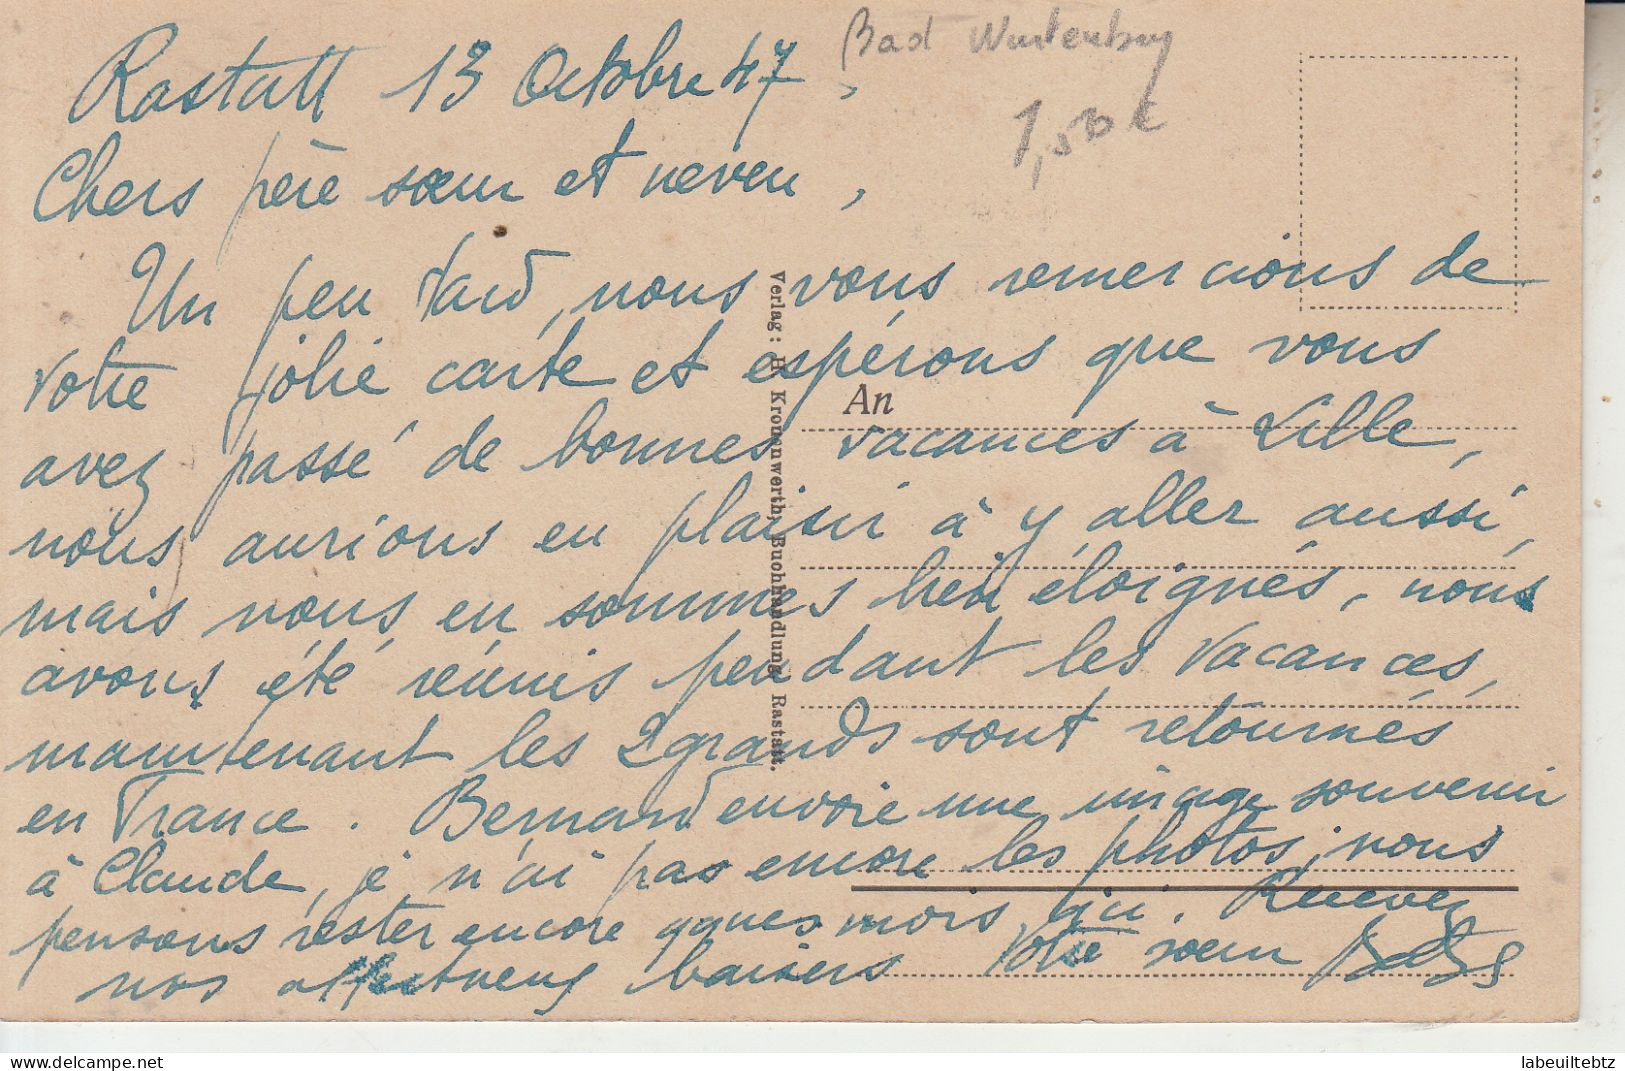 Bad Wurtenberg
Rastatt 13 Octobre 47,
1,50 €
Chers père sœur et neveu,
Un peu tard, nous vous remercions de
votre jolie carte et espérons que vous
An
avez passé de bonnes vacances à Lille,
nous aurions eu plaisir à y aller aussi,
mais nous en sommes bein éloignés, nous
avons été réunis pendant les vacances,
maintenant les 2 grands sont retournés
en France. Bernard envoie une image souvenir
à Claude, je n'ai pas encore les photos, nous
pensons rester encore qques mois ici. Recevez
nos affectueux baisers Votre sœur
Verlag: H. Kronenwerth, Buchhandlung, Rastatt.
delcampe.net
labeuiltebtz